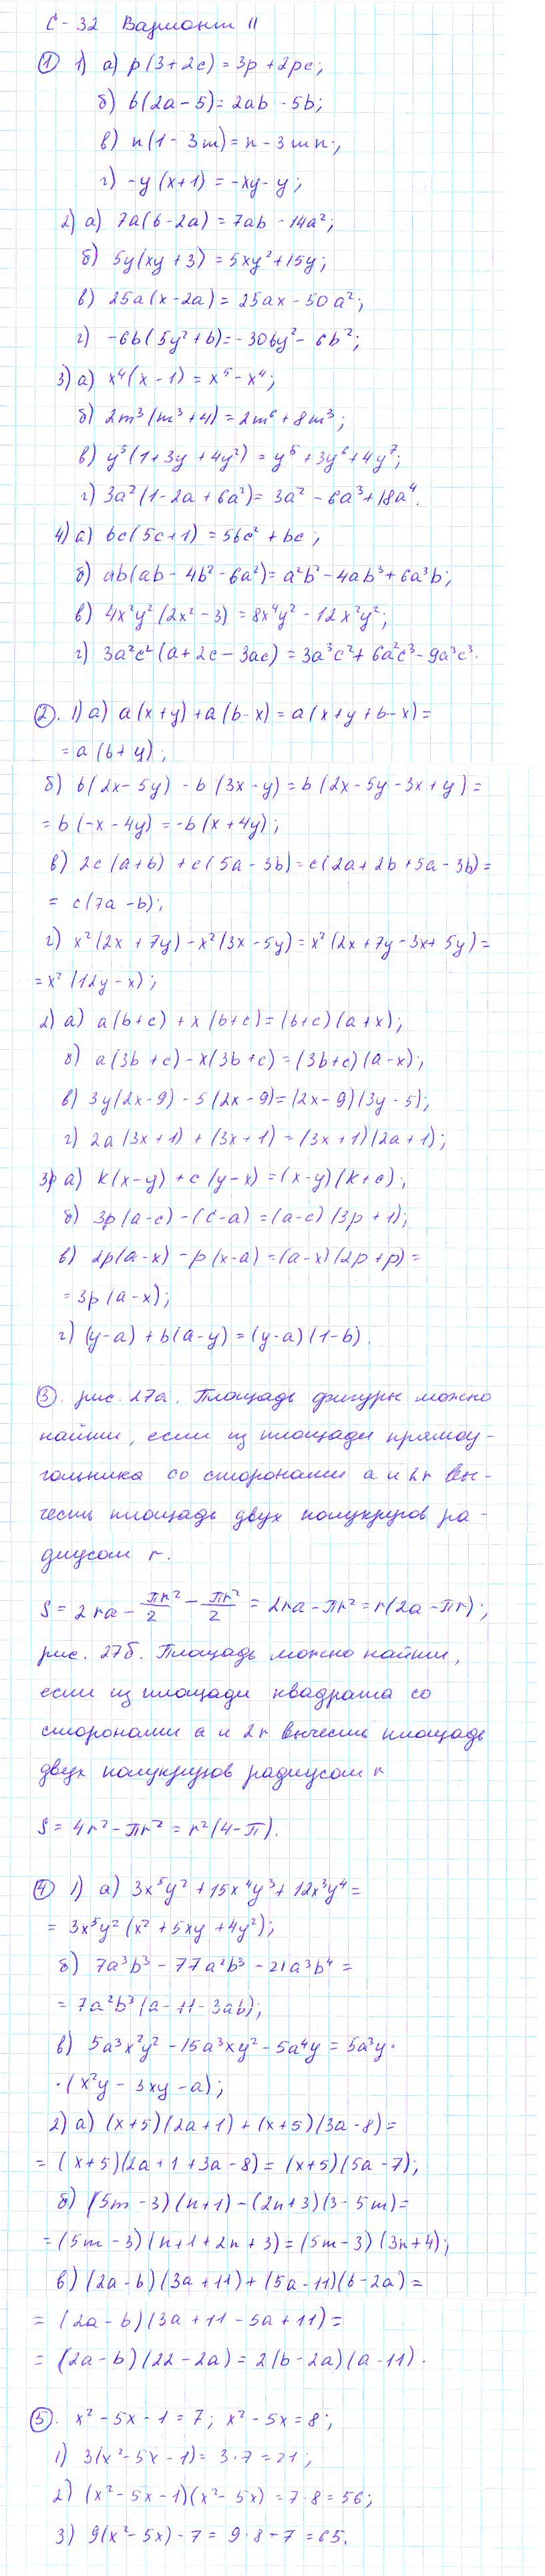 С-32 Вариант II
① 1) а) p(3+2c)=3p+2pc;
б) b(2a-5)=2ab-5b;
в) n(1-3m)=n-3mn;
г) -y(x+1)=-xy-y;
2) а) 7a(b-2a)=7ab-14a²;
б) 5y(xy+3)=5xy²+15y;
в) 25a(x-2a)=25ax-50a²;
г) -6b(5y²+b)=-30by²-6b²;
3) а) x⁴(x-1)=x⁵-x⁴;
б) 2m³(m³+4)=2m⁶+8m³;
в) y⁵(1+3y+4y²)=y⁵+3y⁶+4y⁷;
г) 3a²(1-2a+6a²)=3a²-6a³+18a⁴.
4) а) bc(5c+1)=5bc²+bc;
б) ab(ab-4b²-6a²)=a²b²-4ab³+6a³b;
в) 4x²y²(2x²-3)=8x⁴y²-12x²y²;
г) 3a²c²(a+2c-3ac)=3a³c²+6a²c³-9a³c³.
②. 1) а) a(x+y)+a(b-x)=a(x+y+b-x)=
=a(b+y);
б) b(2x-5y)-b(3x-y)=b(2x-5y-3x+y)=
=b(-x-4y)=-b(x+4y);
в) 2c(a+b)+c(5a-3b)=c(2a+2b+5a-3b)=
=c(7a-b);
г) x²(2x+7y)-x²(3x-5y)=x²(2x+7y-3x+5y)=
=x²(12y-x);
2) а) a(b+c)+x(b+c)=(b+c)(a+x);
б) a(3b+c)-x(3b+c)=(3b+c)(a-x);
в) 3y(2x-9)-5(2x-9)=(2x-9)(3y-5);
г) 2a(3x+1)+(3x+1)=(3x+1)(2a+1);
3) а) k(x-y)+c(y-x)=(x-y)(k+c);
б) 3p(a-c)-(c-a)=(a-c)(3p+1);
в) 2p(a-x)-p(x-a)=(a-x)(2p+p)=
=3p(a-x);
г) (y-a)+b(a-y)=(y-a)(1-b).
③. рис. 27а. Площадь фигуры можно
найти, если из площади прямоу-
гольника со сторонами a и 2r вы-
честь площадь двух полукругов ра-
диусом r.
S=2ra-πr²/2-πr²/2=2ra-πr²=r(2a-πr);
рис. 27б. Площадь можно найти,
если из площади квадрата со
сторонами a и 2r вычесть площадь
двух полукругов радиусом r
S=4r²-πr²=r²(4-π).
④ 1) а) 3x⁵y²+15x⁴y³+12x³y⁴=
=3x³y²(x²+5xy+4y²);
б) 7a³b³-77a²b³-21a³b⁴=
=7a²b³(a-11-3ab);
в) 5a³x²y²-15a³xy²-5a⁴y=5a³y·
·(x²y-3xy-a);
2) а) (x+5)(2a+1)+(x+5)(3a-8)=
=(x+5)(2a+1+3a-8)=(x+5)(5a-7);
б) (5m-3)(n+1)-(2n+3)(3-5m)=
=(5m-3)(n+1+2n+3)=(5m-3)(3n+4);
в) (2a-b)(3a+11)+(5a-11)(b-2a)=
=(2a-b)(3a+11-5a+11)=
=(2a-b)(22-2a)=2(b-2a)(a-11).
⑤. x²-5x-1=7; x²-5x=8;
1) 3(x²-5x-1)=3·7=21;
2) (x²-5x-1)(x²-5x)=7·8=56;
3) 9(x²-5x)-7=9·8-7=65.